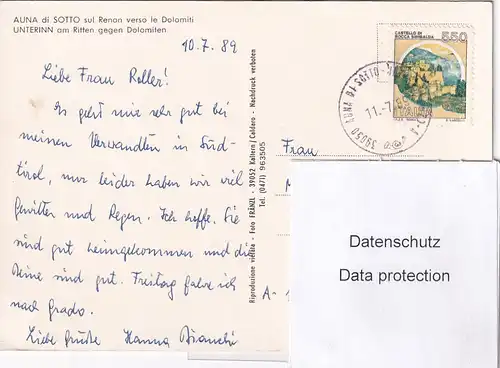 AUNA di SOTTO sul Renon verso le Dolomiti
UNTERINN am Ritten gegen Dolomiten
10.7.89
Liebe Frau Roller!
Es geht mir sehr gut bei
meinen Verwandten in Süd-
tirol, nur leider haben wir viel
Gewitter und Regen. Ich hoffe, Sie
sind gut heimgekommen und die
Beine sind gut. Freitag fahre ich
nach Grado.
Liebe Grüße Hanna Bianchi
Riproduzione vietata - Foto FRÄNZL - 39052 Kaltern/Caldaro - Nachdruck verboten
Tel. (0471) 963505
CASTELLO DI
ROCCA SINIBALDA
550
ITALIA
39050 AUNA DI SOTTO
11.7.
Frau
A-
Datenschutz
Data protection